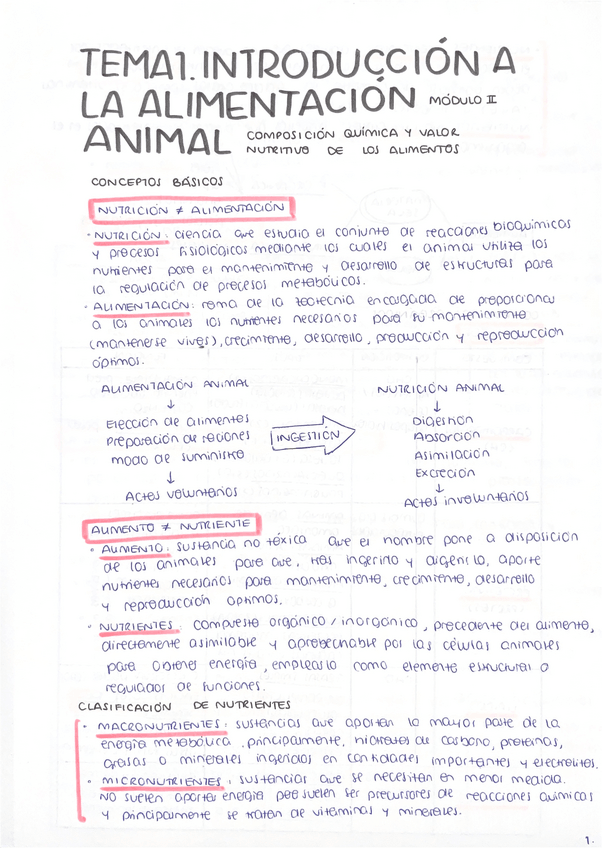 TEMA 1. INTRODUCCIÓN A
LA ALIMENTACIÓN MÓDULO II
ANIMAL COMPOSICIÓN QUÍMICA Y VALOR
NUTRITIVO DE LOS ALIMENTOS
CONCEPTOS BÁSICOS
NUTRICIÓN ≠ ALIMENTACIÓN
· NUTRICIÓN: ciencia que estudia el conjunto de reacciones bioquímicas
y procesos fisiológicos mediante los cuales el animal utiliza los
nutrientes para el mantenimiento y desarrollo de estructuras para
la regulación de procesos metabólicos.
· ALIMENTACIÓN: rama de la zootecnia encargada de proporcionar
a los animales los nutrientes necesarios para su mantenimiento
(mantenerse vives), crecimiento, desarrollo, producción y reproducción
óptimos.
ALIMENTACIÓN ANIMAL
↓
Elección de alimentos
Preparación de raciones
modo de suministro
↓
Actos voluntarios
INGESTIÓN
NUTRICIÓN ANIMAL
↓
Digestión
Absorción
Asimilación
Excreción
↓
Actos involuntarios
ALIMENTO ≠ NUTRIENTE
· ALIMENTO: sustancia no tóxica que el hombre pone a disposición
de los animales para que, tras ingerirlo y digerirlo, aporte
nutrientes necesarios para mantenimiento, crecimiento, desarrollo
y reproducción óptimos.
· NUTRIENTES: compuesto orgánico/inorgánico, procedente del alimento,
directamente asimilable y aprobechable por las células animales
para obtener energía, emplearlo como elemento estructural o
regulador de funciones.
CLASIFICACIÓN DE NUTRIENTES
· MACRONUTRIENTES: sustancias que aportan la mayor parte de la
energía metabólica. principalmente, hidratos de carbono, proteínas,
grasas o minerales ingeridos en cantidades importantes y electrolitos.
· MICRONUTRIENTES: sustancias que se necesitan en menor medida.
NO suelen aportar energía pero suelen ser precursores de reacciones químicas
y principalmente se tratan de vitaminas y minerales.
1.